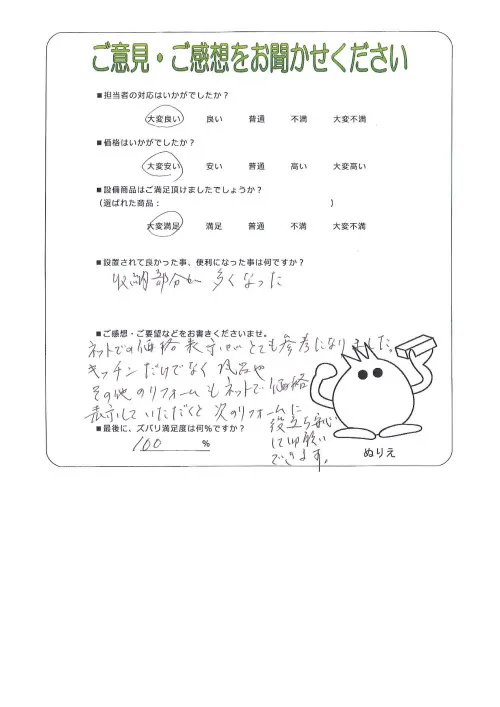 ご意見・ご感想をお聞かせください
■担当者の対応はいかがでしたか？
大変良い 良い 普通 不満 大変不満
■価格はいかがでしたか？
大変安い 安い 普通 高い 大変高い
■設備商品はご満足頂けましたでしょうか？
（選ばれた商品： ）
大変満足 満足 普通 不満 大変不満
■設置されて良かった事、便利になった事は何ですか？
収納部分が多くなった
■ご感想・ご要望などをお書きくださいませ。
ネットでの価格表示がとても参考になりました。
キッチンだけでなく風呂や
その他のリフォームもネットで価格
表示していただくと次のリフォームに
役立ち安心
してお願い
できます。
■最後に、ズバリ満足度は何％ですか？
100 ％
ぬりえ